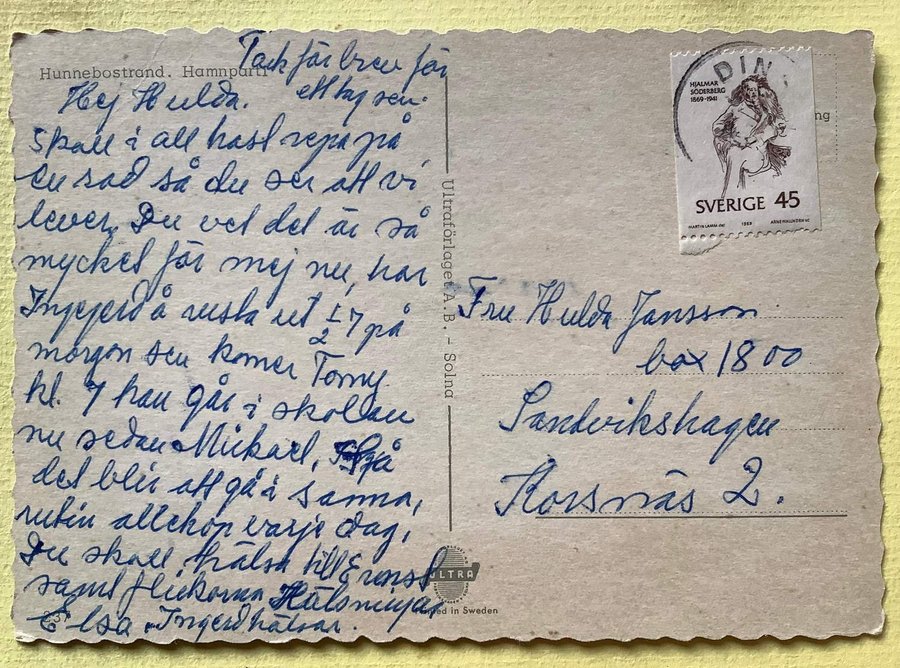 Hunnebostrand. Hamnparti
Tack för brev för
ett tag sen.
Hej Hulda.
Skall i all hast repa på
en rad så du ser att vi
lever, Du vet det är så
mycket för mej nu, har
Ingejerd å rusta ut 1/2 7 på
morgon sen komer Tomy
kl. 7 han går i skolan
nu sedan Mickael,
det blir att gå i samma,
rutin alltihop varje dag,
Du skall hälsa till Ernst
samt flickorna Hälsningar
Elsa. Ingerd hälsar.
Ultraförlaget A.B. - Solna
ULTRA
Printed in Sweden
DIN
HJALMAR
SÖDERBERG
1869-1941
SVERIGE 45
MARTIN LAMM DEL 1969
Fru Hulda Jansson
box 1800
Sandvikshagen
Korsnäs 2.